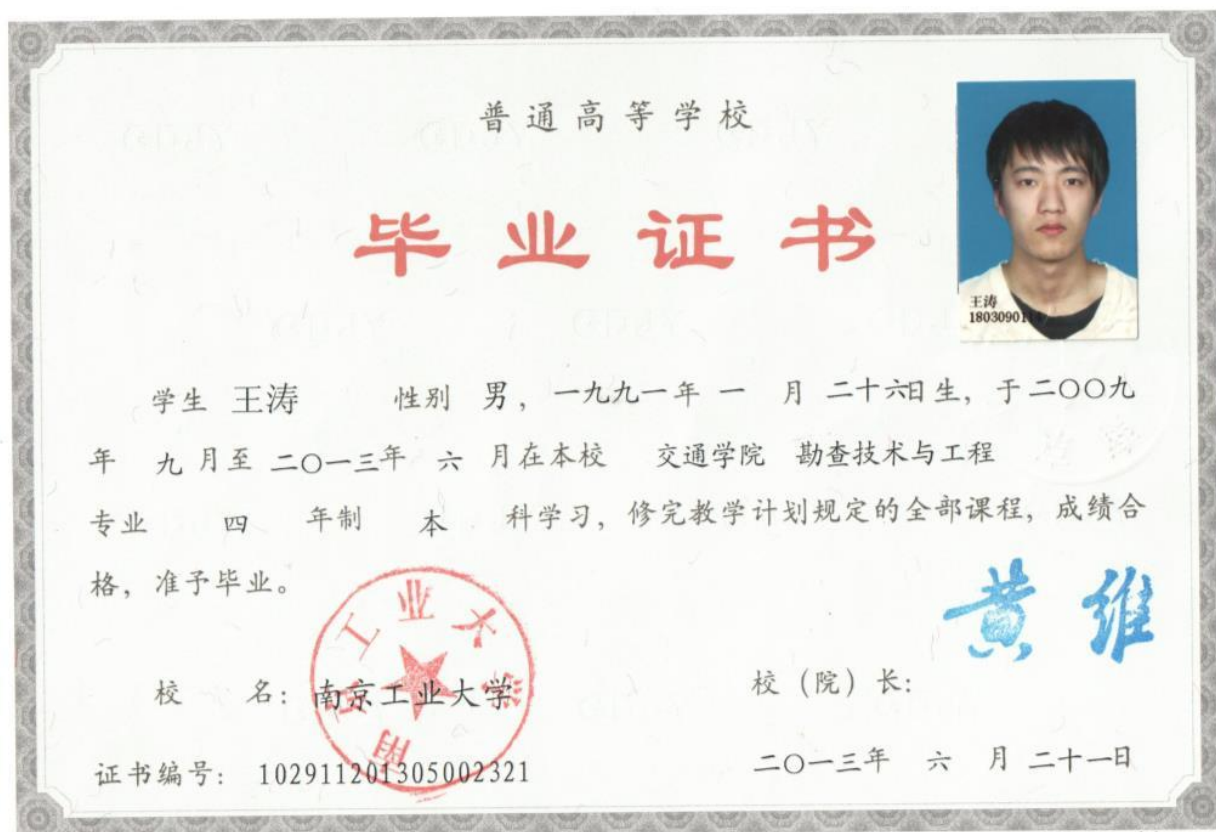 普通高等学校
毕业证书
王涛
18030901
学生 王涛 性别 男，一九九一年 一 月 二十六日生，于二〇〇九
年 九 月至 二〇一三年 六 月在本校 交通学院 勘查技术与工程
专业 四 年制 本 科学习，修完教学计划规定的全部课程，成绩合
格，准予毕业。
黄维
南京工业大学
校 名：南京工业大学 校（院）长：
证书编号： 102911201305002321 二〇一三年 六 月 二十一日